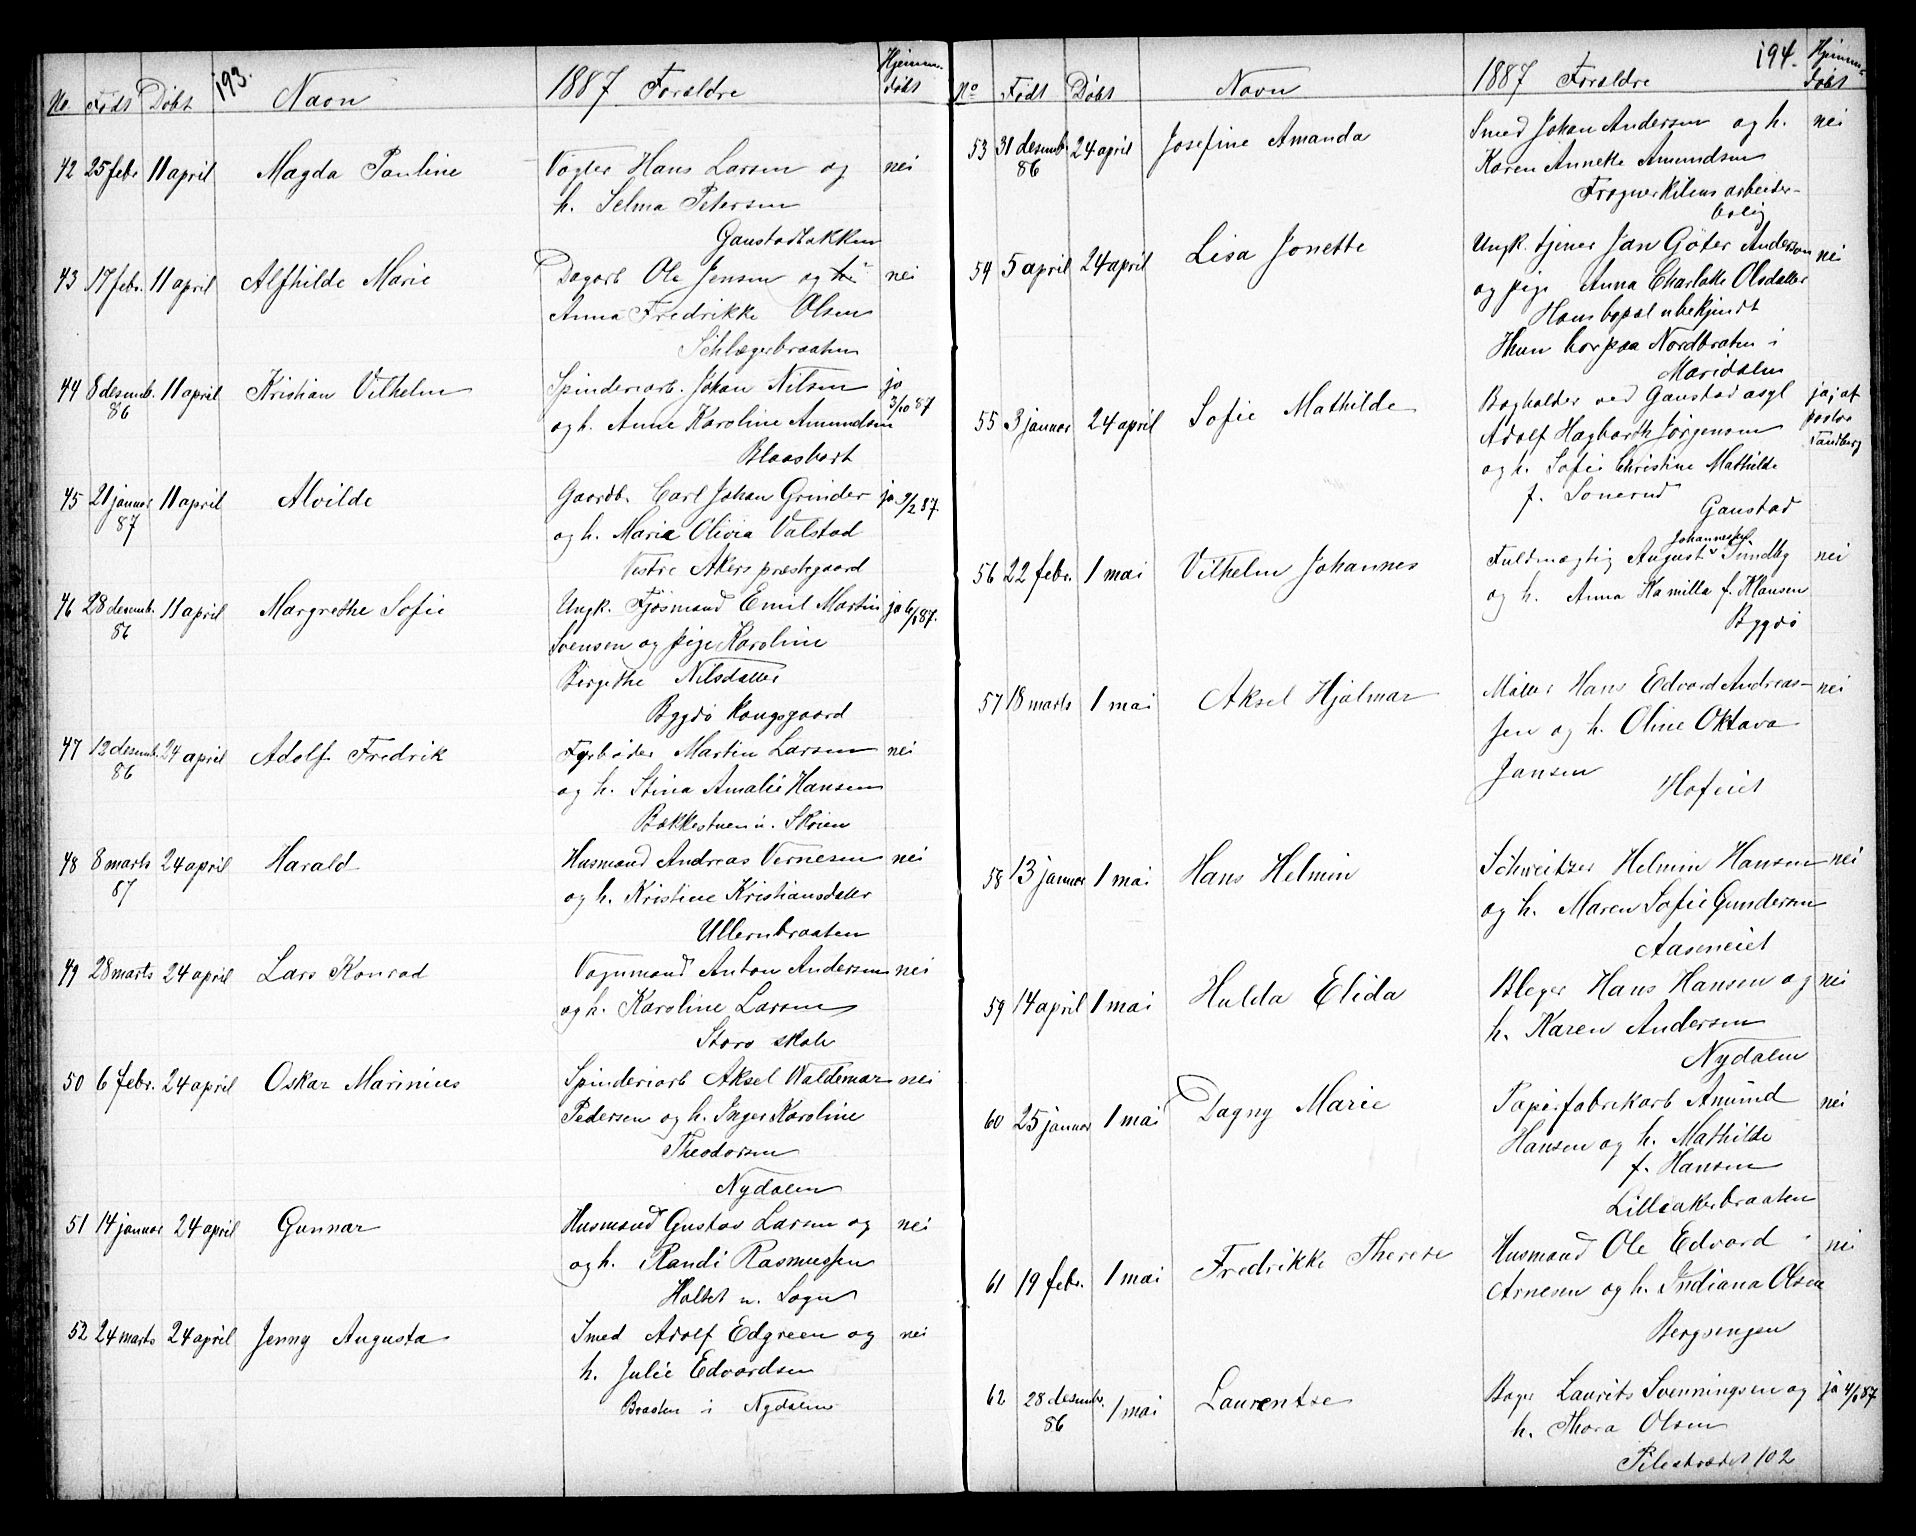 193.
No Født Døbt Navn 1887 Forældre Hjemme-
døbt
42 25 febr 11 april Magda Pauline Vogter Hans Larsen og nei
h. Selma Petersen
Gaustadbakken
43 17 febr. 11 april Alfhilde Marie Dagarb Ole Jensen og h. nei
Anna Fredrikke Olsen
Schlægerbraaten
44 8 desemb. 11 april Kristian Vilhelm Spinderiarb. Johan Nilsen ja
86 og h. Anne Karoline Amundsen 3/10 87
Blaasbort
45 21 januar 11 april Alvilde Gaardb. Carl Johan Grinder ja 9/2 87.
87 og h. Maria Olivia Valstad
Vestre Akers præstegaard
46 28 desemb. 11 april Margrethe Sofie Ungk. Fjøsmand Emil Martin ja 6/1 87.
86 Svensen og pige Karoline
Bergethe Nilsdatter
Bygdø Kongsgaard
47 12 desemb. 24 april Adolf Fredrik Fyrbøder Martin Larsen nei
86 og h. Stina Amalie Hansen
Bækkestuen u. Skøien
48 8 marts 24 april Harald Husmand Andreas Vernesen nei
87 og h. Kristine Kristiansdatter
Ullernbraaten
49 28 marts 24 april Lars Konrad Vognmand Anton Andersen nei
og h. Karoline Larsen
Storo skole
50 6 febr. 24 april Oskar Marinius Spinderiarb Aksel Waldemar nei
Pedersen og h. Inger Karoline
Theodorsen
Nydalen
51 14 januar 24 april Gunnar Husmand Gustav Larsen og nei
og h. Randi Rasmussen
Holtet u. Sogn
52 24 marts 24 april Jenny Augusta Smed Adolf Edgreen og nei
h. Julie Edvardsen
Braaten i Nydalen
194.
No Født Døbt Navn 1887 Forældre Hjemme-
døbt
53 31 desemb. 24 april Josefine Amanda Smed Johan Andersen og h. nei
86 Karen Annette Amundsen
Frognerkilens arbeider-
bolig
54 5 april 24 april Lisa Jonette Ungk. tjener Jan Göter Anderson nei
og pige Anna Charlotte Olsdatter
Hans bopæl ubekjendt
Hun bor paa Nordbraten i
Maridalen
55 3 januar 24 april Sofie Mathilde Bogholder ved Gaustad asyl ja, af
Adolf Hagbarth Jørgensen pastor
og h. Sofie Christine Mathilde Tandberg
f. Sonerud
Gaustad
Johanneshf
56 22 febr. 1 mai Vilhelm Johannes Fuldmægtig August Sundby nei
og h. Anna Kamilla f. Klausen
Bygdø
57 18 marts 1 mai Aksel Hjalmar Maler Hans Edvard Andreas- nei
sen og h. Oline Oktava
Jansen
Hofeiet
58 13 januar 1 mai Hans Helmin Schweitzer Helmin Hansen nei
og h. Maren Sofie Gundersen
Aaseneiet
59 14 april 1 mai Hulda Elida Bleger Hans Hansen og nei
h. Karen Andersen
Nydalen
60 25 januar 1 mai Dagny Marie Papirfabrikarb Amund nei
Hansen og h. Mathilde
f. Hansen
Lilleakerbraaten
61 19 febr. 1 mai Fredrikke Therese Husmand Ole Edvard nei
Arnesen og h. Indiana Olsen
Bergsengen
62 28 desembr. 1 mai Laurentse Bager Laurits Svenningsen og ja 4/1 87
86 h. Thora Olsen
Pilestrædet 102